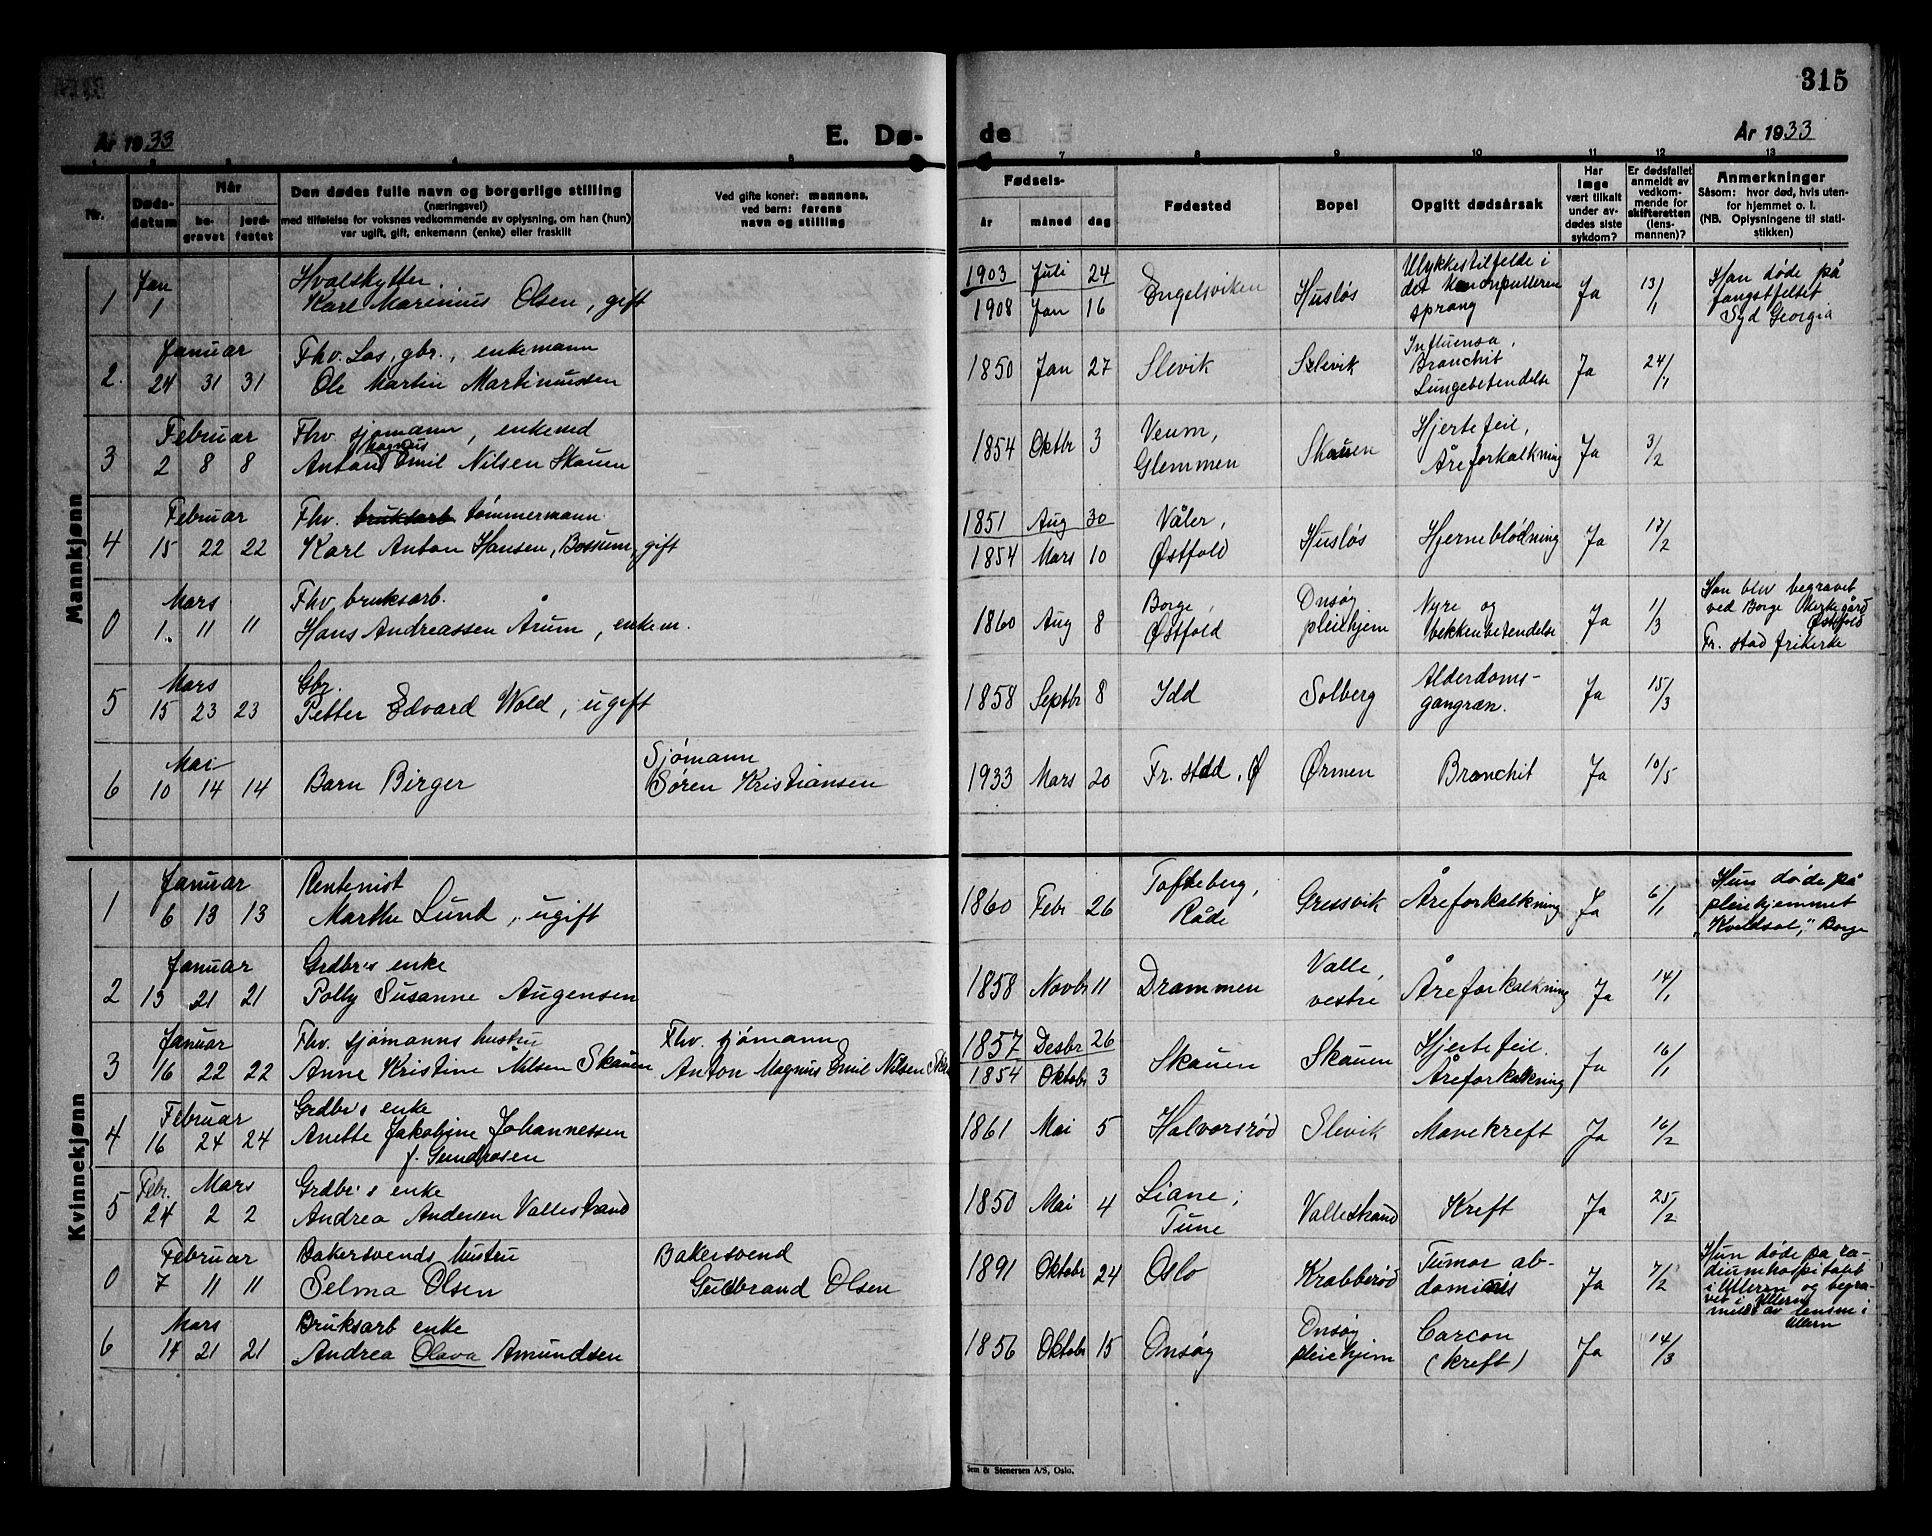 315
År 1933
E. Dø-
de
År 1933
1 2 3 4 5
7 8 9 10 11 12 13
Nr.
Døds-
datum
Når
be-
gravet
jord-
festet
Den dødes fulle navn og borgerlige stilling
(næringsvei)
med tilføielse for voksnes vedkommende av oplysning, om han (hun)
var ugift, gift, enkemann (enke) eller fraskilt
Ved gifte koner: mannens,
ved barn: farens
navn og stilling
Fødsels-
år
måned
dag
Fødested
Bopel
Opgitt dødsårsak
Har
læge
vært tilkalt
under av-
dødes siste
sykdom?
Er dødsfallet
anmeldt av
vedkom-
mende for
skifteretten
(lens-
mannen)?
Anmerkninger
Såsom: hvor død, hvis uten-
for hjemmet o. l.
(NB. Oplysningene til stati-
stikken)
Mannkjønn
1 Jan 1
Hvalskytter.
Karl Marinius Olsen, gift
1903 Juli 24
1908 Jan 16
Engelsviken
Husløs
Ulykkestilfelde i
det kanonpulleren
sprang
Ja
13/1
Han døde på
fangstfeltet
Syd Georgia
2. Januar
24 31 31
Fhv. Los, gbr., enkemann
Ole Martin Martinussen
1850 Jan 27
Slevik
Slevik
Influensa,
Bronchit
Lungebetendelse
Ja
24/1
3 Februar
2 8 8
Fhv. sjømann, enkemd
Magnus
Anton Emil Nilsen Skauen
1854 Oktbr 3
Veum,
Glemmen
Skauen
Hjertefeil,
Åreforkalkning
Ja
3/2
4 Februar
15 22 22
Fhv. bruksarb. tømmermann.
Karl Anton Hansen, Bossum, gift
1851 Aug 30
1854 Mars 10
Våler,
Østfold
Husløs
Hjerneblødning
Ja
17/2
0 Mars
1. 11 11
Fhv. bruksarb.
Hans Andreassen Årum, enkem.
1860 Aug 8
Borge,
Østfold
Onsøy
pleiehjem
Nyre og
bekkenbetendelse
Ja
1/3
Han blev begravet
ved Borge kirkegård
Østfold
Fr. stad frikirke
5 Mars
15 23 23
Gbr.
Petter Edvard Wold, ugift
1858 Septbr 8
Idd
Solberg
Alderdoms-
gangræn.
Ja
15/3
6 Mai
10 14 14
Barn Birger
Sjømann
Søren Kristiansen
1933 Mars 20
Fr. stad, Ø
Ørmen
Bronchit
Ja
10/5
Kvinnekjønn
1 Januar
6 13 13
Rentenist
Marthe Lund, ugift
1860 Febr 26
Tofteberg,
Råde
Gressvik
Åreforkalkning
Ja
6/1
Hun døde på
pleiehjemmet
"Kveldsol," Borge
2 Januar
13 21 21
Grdbr's enke
Polly Susanne Augensen
1858 Novbr 11
Drammen
Valle,
vestre
Åreforkalkning
Ja
14/1
3 Januar
16 22 22
Fhv. sjømanns hustru
Anne Kristine Nilsen Skauen
Fhv. sjømann
Anton Magnus Emil Nilsen
1857 Desbr 26
1854 Oktobr 3
Skauen
Skauen
Hjertefeil.
Åreforkalkning
Ja
16/1
4 Februar
16 24 24
Grdbr's enke
Anette Jakobine Johannessen
f. Gundrosen
1861 Mai 5
Halvorsrød
Slevik
Mavekreft
Ja
16/2
5 Febr. Mars
24 2 2
Grdbr's enke
Andrea Andersen Vallestrand
1850 Mai 4
Liane,
Tune
Vallestrand
Kreft
Ja
25/2
0 Februar
7 11 11
Bakersvends hustru
Selma Olsen
Bakersvend
Gudbrand Olsen
1891 Oktobr 24
Oslo
Krabberød
Tumor ab-
dominis
Ja
7/2
Hun døde på ra-
diumhospitalet
i Ullern og begra-
vet i Ullern
Ullern
6 Mars
14 21 21
Bruksarb enke
Andrea Olava Amundsen
1856 Oktobr 15
Onsøy
Onsøy
pleiehjem
Carcon
(kreft)
Ja
14/3
Sem & Stenersen A/S, Oslo.